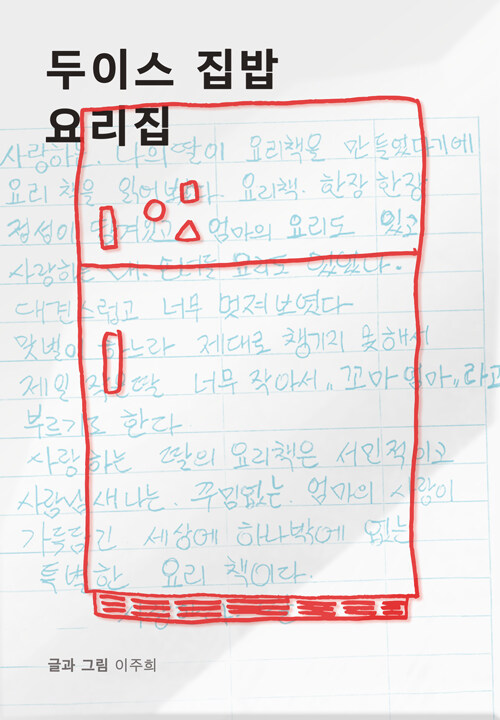 두이스 집밥
요리집
사랑하는 나의 딸이 요리책을 만들었다기에
요리 책을 읽어보았다 요리책 한장 한장
정성이 담겨있고 엄마의 요리도 있고
사랑하는 내 손녀들 요리도 있었다.
대견스럽고 너무 멋져 보였다
맞벌이 하느라 제대로 챙기지 못해서
제일 작은딸 너무 작아서 "꼬마엄마" 라고
부르기도 한다
사랑하는 딸의 요리책은 서민적이고
사람 냄새나는. 꾸밈없는. 엄마의 사랑이
가득담긴 세상에 하나밖에 없는
특별한 요리 책이다.
글과 그림 이주희